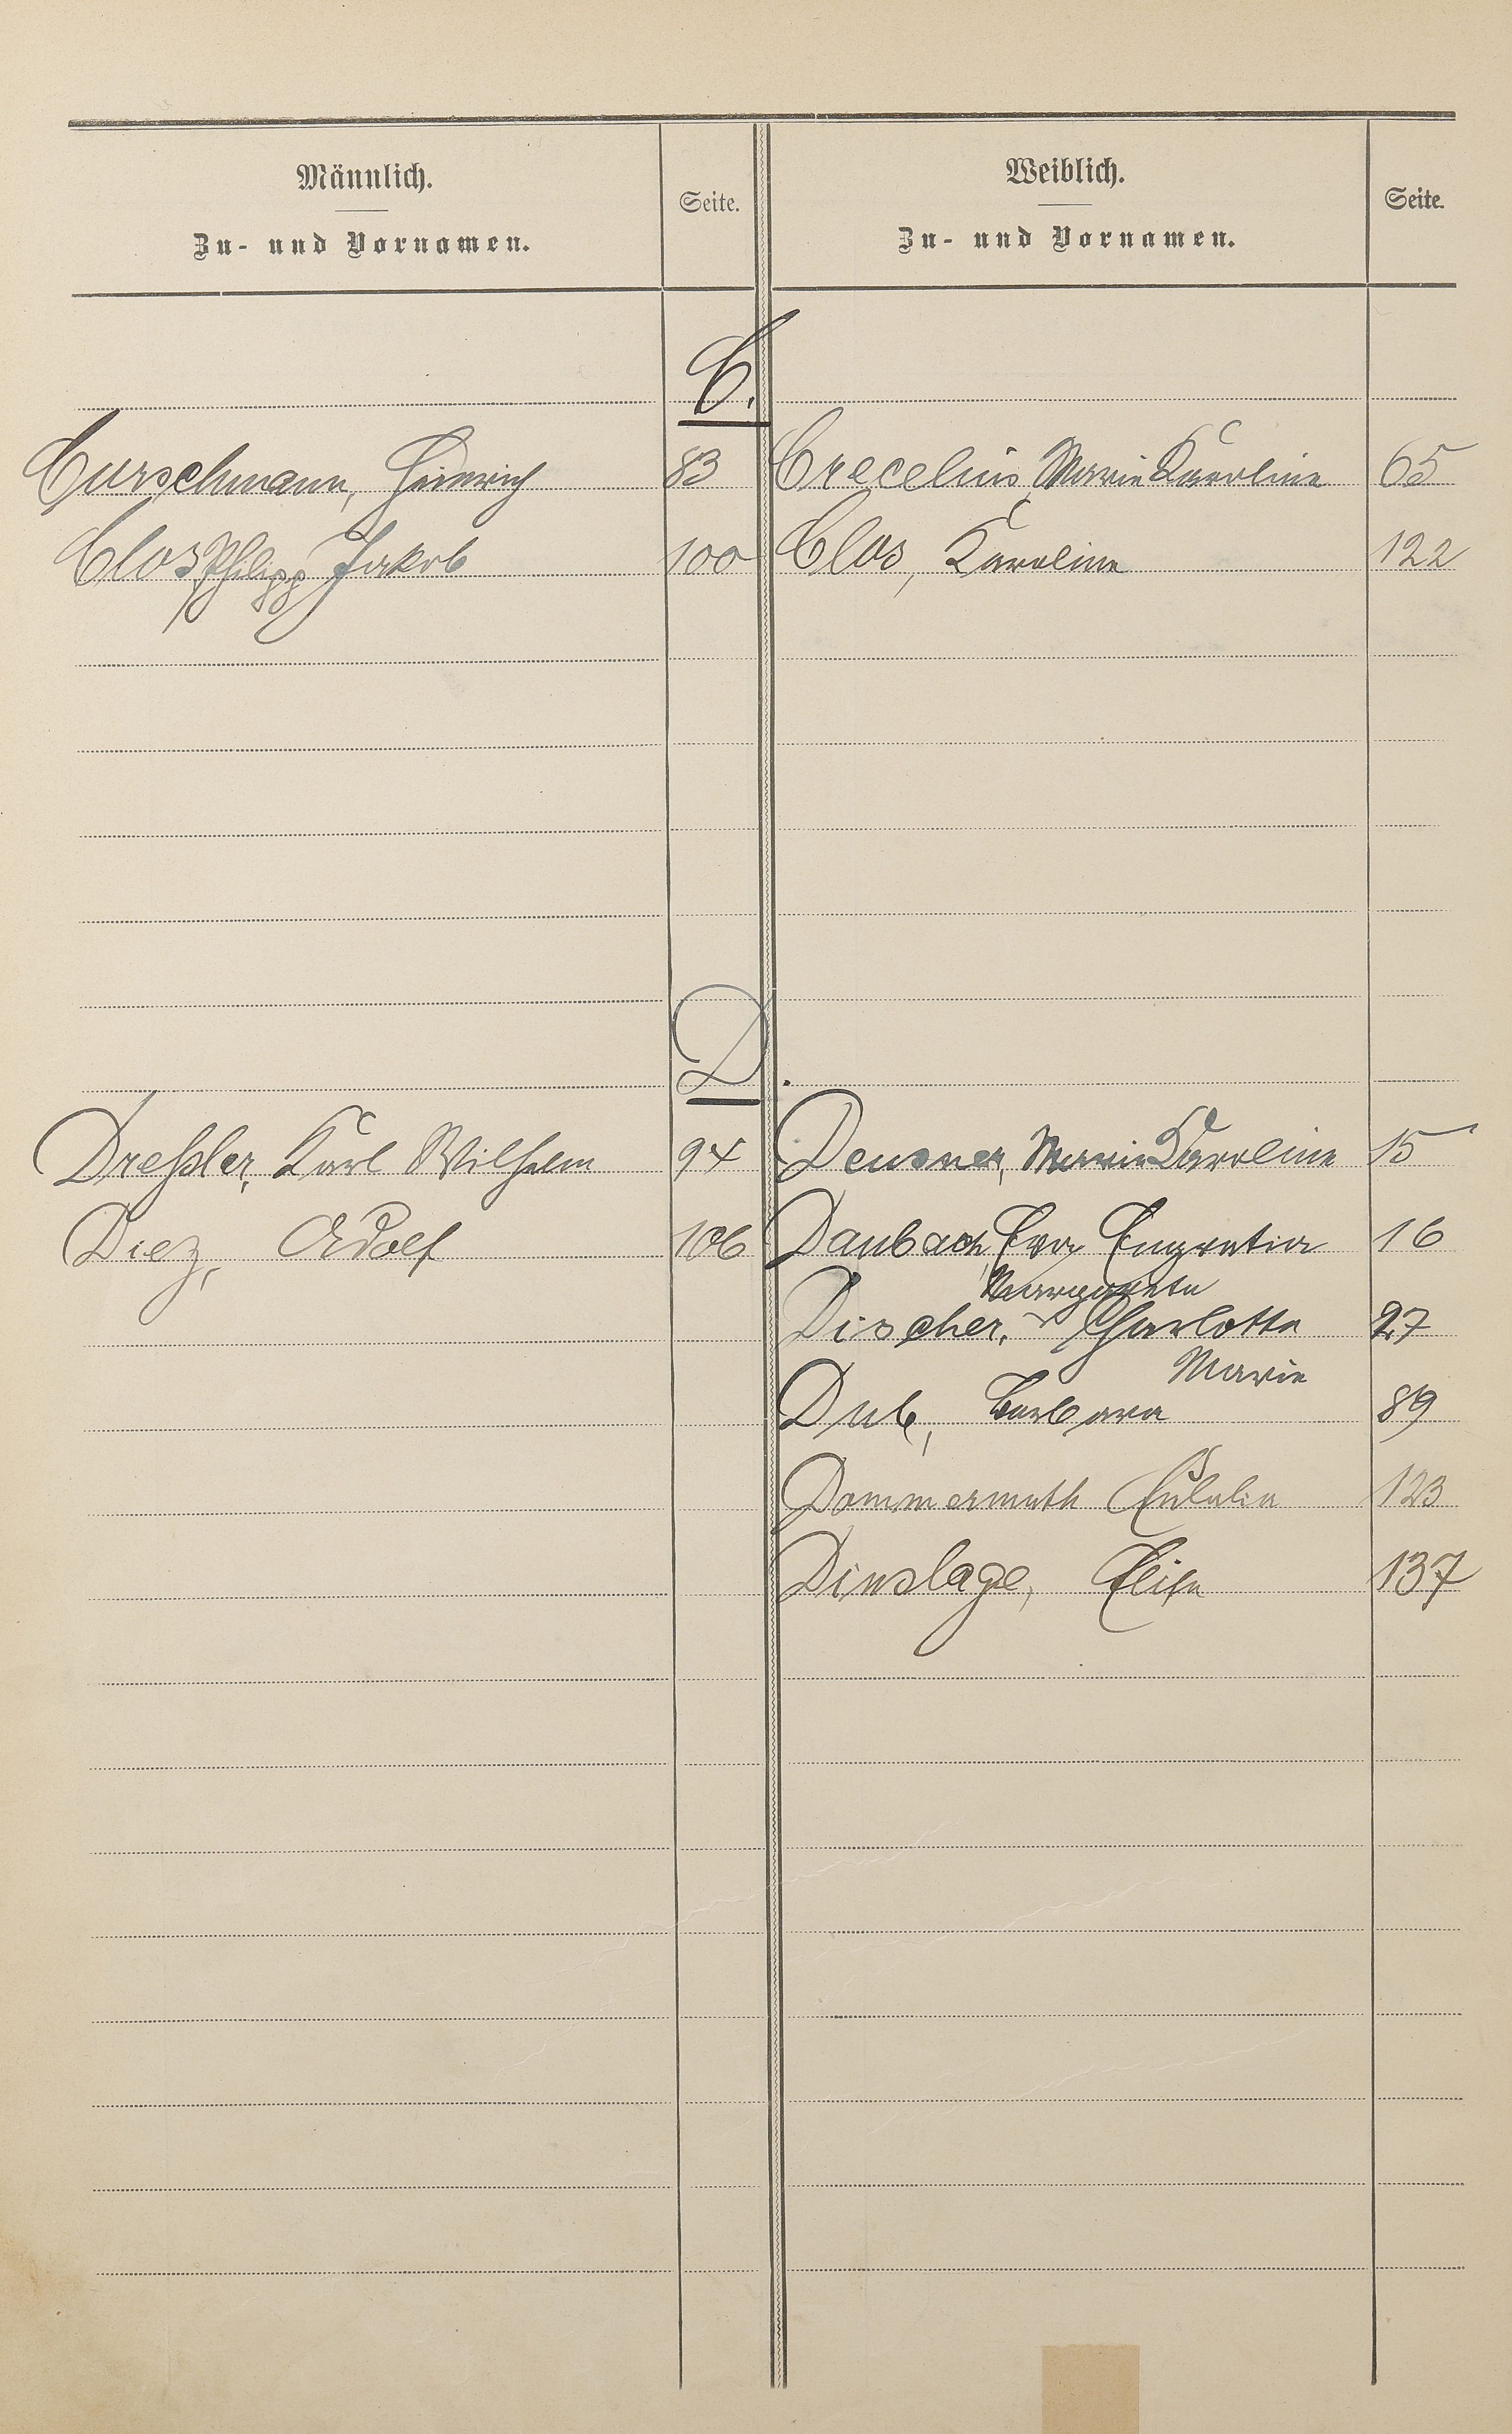 Männlich.
Zu- und Vornamen.
Seite.
Weiblich.
Zu- und Vornamen.
Seite.
C.
Curschmann, Heinrich 83 Crecelius, Marie Karoline 65
Clos, Philipp Jakob 100 Clos, Karoline 122
D.
Dreßler, Karl Wilhelm 94 Deusner, Marie Karoline 15
Diez, Adolf 106 Daubach, Eva Engratia 16
Margareta
Discher, Charlotte 27
Marie
Dub, Barbara 89
Dommermuth Eulalia 123
Dinslage, Elise 137